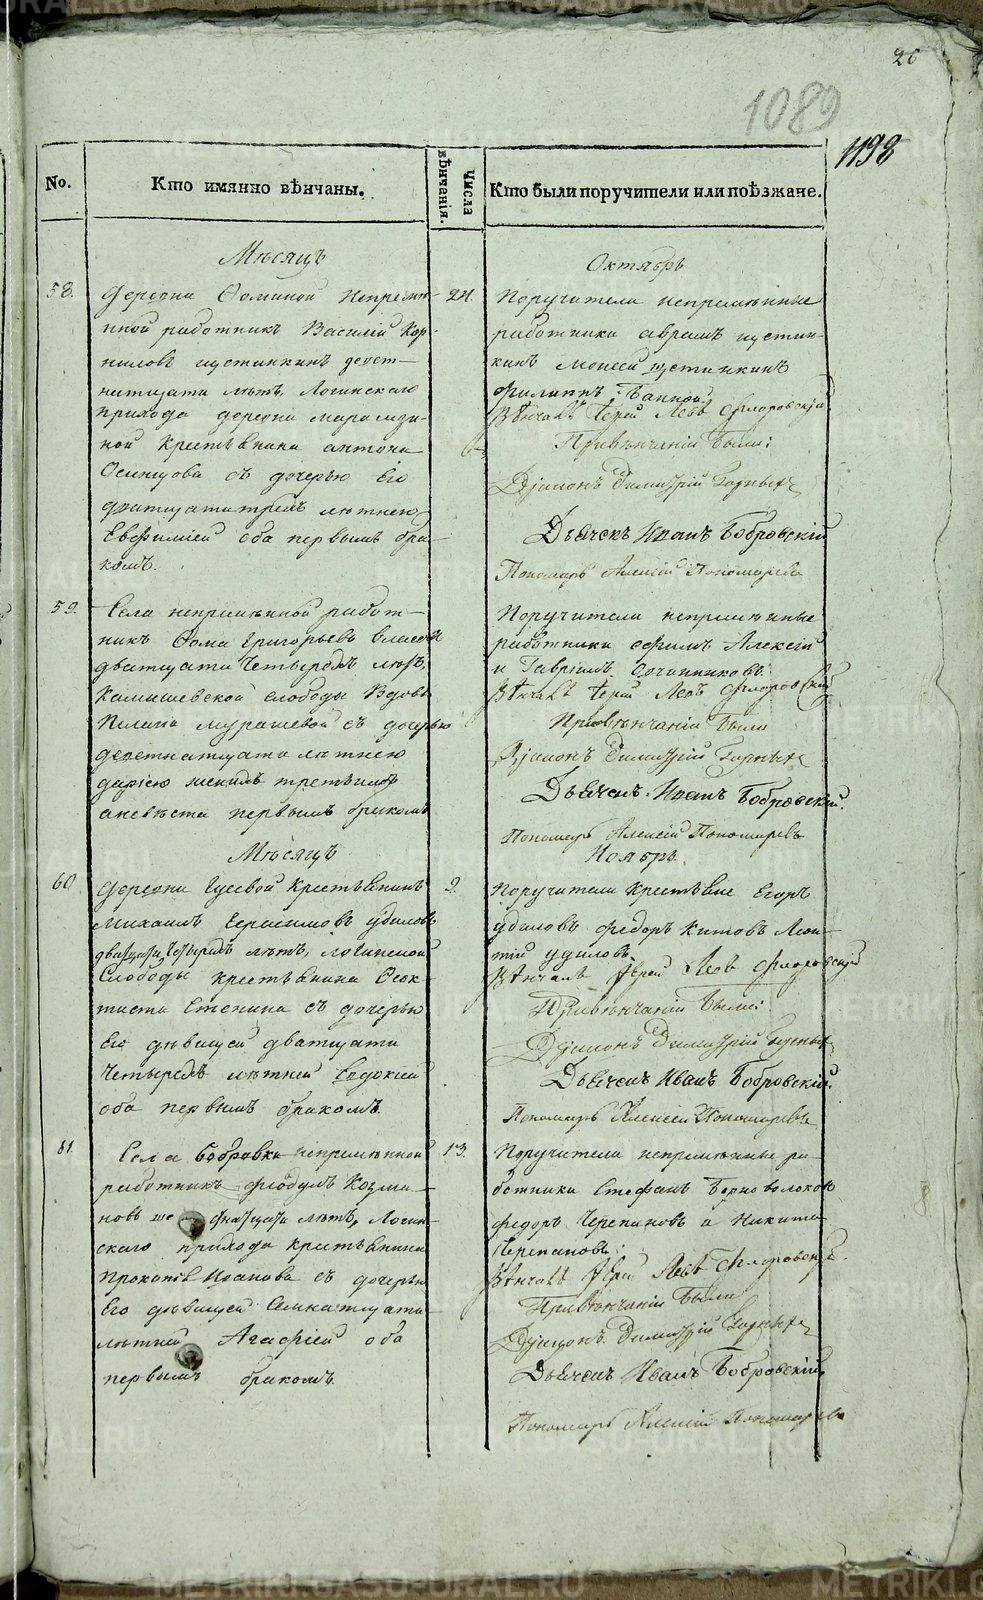 20
1089
1198
No.
Кто имянно вѣнчаны.
Числа вѣнчанія.
Кто были поручители или поѣзжане.
Мѣсяцъ
Октябрь
58.
Деревни Ѳоминой непремѣ-
нной работникъ Василій Кор-
ниловъ пустынкинъ девят-
натцати лѣтъ, Логинскаго
прихода деревни
ной крестьянина антона
Осинцова съ дочерью Его
дватцатитрехъ лѣтнею
Евфиміей оба первымъ бра-
комъ.
24.
Поручители непремѣнные
работники аврамъ пустын-
кинъ моисей пустынкинъ
филиппъ
Вѣнчалъ Іерей Левъ Флоровскій
Привѣнчаніи были:
Діаконъ Димитрій
Дьячекъ Иванъ Бобровскій
Пономарь Алексій Пономаревъ
59.
Села непремѣнной работ-
никъ Ѳома Григорьевъ власовъ
дватцати четырехъ лѣтъ,
Камышевской слободы Вдовы
мурашевой съ дочерью
девятнатцати лѣтнею
дарьею женихъ третьимъ
аневѣста первымъ бракомъ
Поручители непремѣнные
работники ефимъ Алексій
и Гавріилъ Овчинниковъ
Вѣнчалъ Іерей Левъ Флоровскій
Привѣнчаніи были
Діаконъ Димитрій
Дьячекъ Иванъ Бобровскій.
Пономарь Алексій Пономаревъ
Мѣсяцъ
Ноябрь.
60.
деревни Гусевой крестьянинъ
михаилъ Герасимовъ удиловъ
дватцати четырехъ лѣтъ, логинской
Слободы крестьянина Ѳеок-
тиста Стенина съ дочерью
Его дѣвицей дватцати
четырехъ лѣтней Евдокіей
оба первымъ бракомъ.
9.
Поручители крестьяне Егоръ
удиловъ федоръ китовъ Леон-
тій удиловъ
Вѣнчалъ Іерей Левъ Флоровскій
Привѣнчаніи были:
Діаконъ Димитрій
Дьячекъ Иванъ Бобровскій.
Пономарь Алексій Пономаревъ
61.
Села Бобровки непремѣнной
работникъ фіодулъ Козми-
новъ лѣтъ, Логин-
скаго прихода крестьянина
Прокопія Иванова съ дочерью
Его дѣвицей Семнатцати
лѣтней Агафіей оба
первымъ бракомъ.
13.
Поручители непремѣнные ра-
ботники Стефанъ
федоръ Черепановъ и Никита
Черепановъ:
Вѣнчалъ Іерей Левъ Флоровскій.
Привѣнчаніи были
Діаконъ Димитрій
Дьячекъ Иванъ Бобровскій
Пономарь Алексій Пономаревъ
METRIKI.GASO-URAL.RU